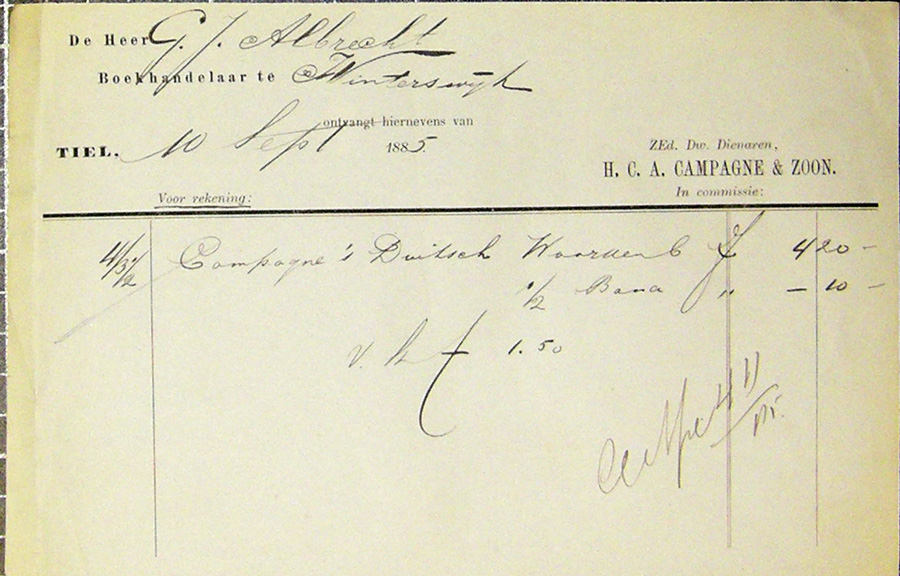 De Heer G. J. Albrecht
Boekhandelaar te Winterswijk
ontvangt hiernevens van
TIEL, 10 Sept 1885.
ZEd. Dw. Dienaren,
H. C. A. CAMPAGNE & ZOON.
Voor rekening: In commissie:
4/3 1/2 Campagne's Duitsch Woordenb f 4 20 -
1/2 Band " - 10 -
1.50